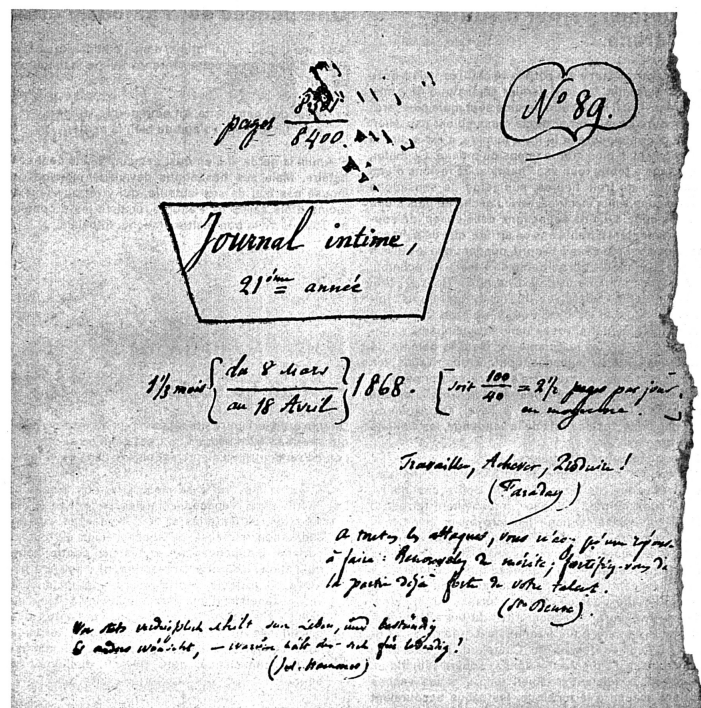 N° 89.
pages
8400.
Journal intime,
21ème année
1⅓ mois { du 8 Mars
au 18 Avril } 1868. [ soit 100/40 = 2½ pages par jour
en moyenne. ]
Travailler, Achever, Produire !
(Faraday)
A toutes les attaques, vous n'avez qu'une réponse
à faire : Renouvelez de mérite ; fortifiez-vous de
la partie déjà forte de votre talent.
(Ste Beuve).
Wer stets verdrießlich schilt sein Leben, und beständig
Es anders wünscht, –